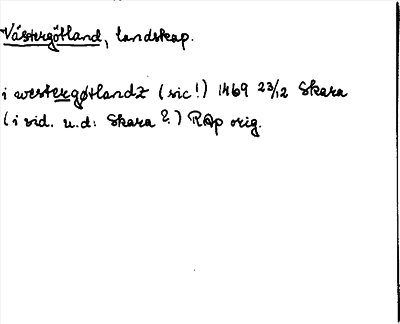 Västergötland, landskap.
i westergøtlandz (sic!) 1469 23/12 Skara
(i vid. u.d: Skara ?) RAp orig.